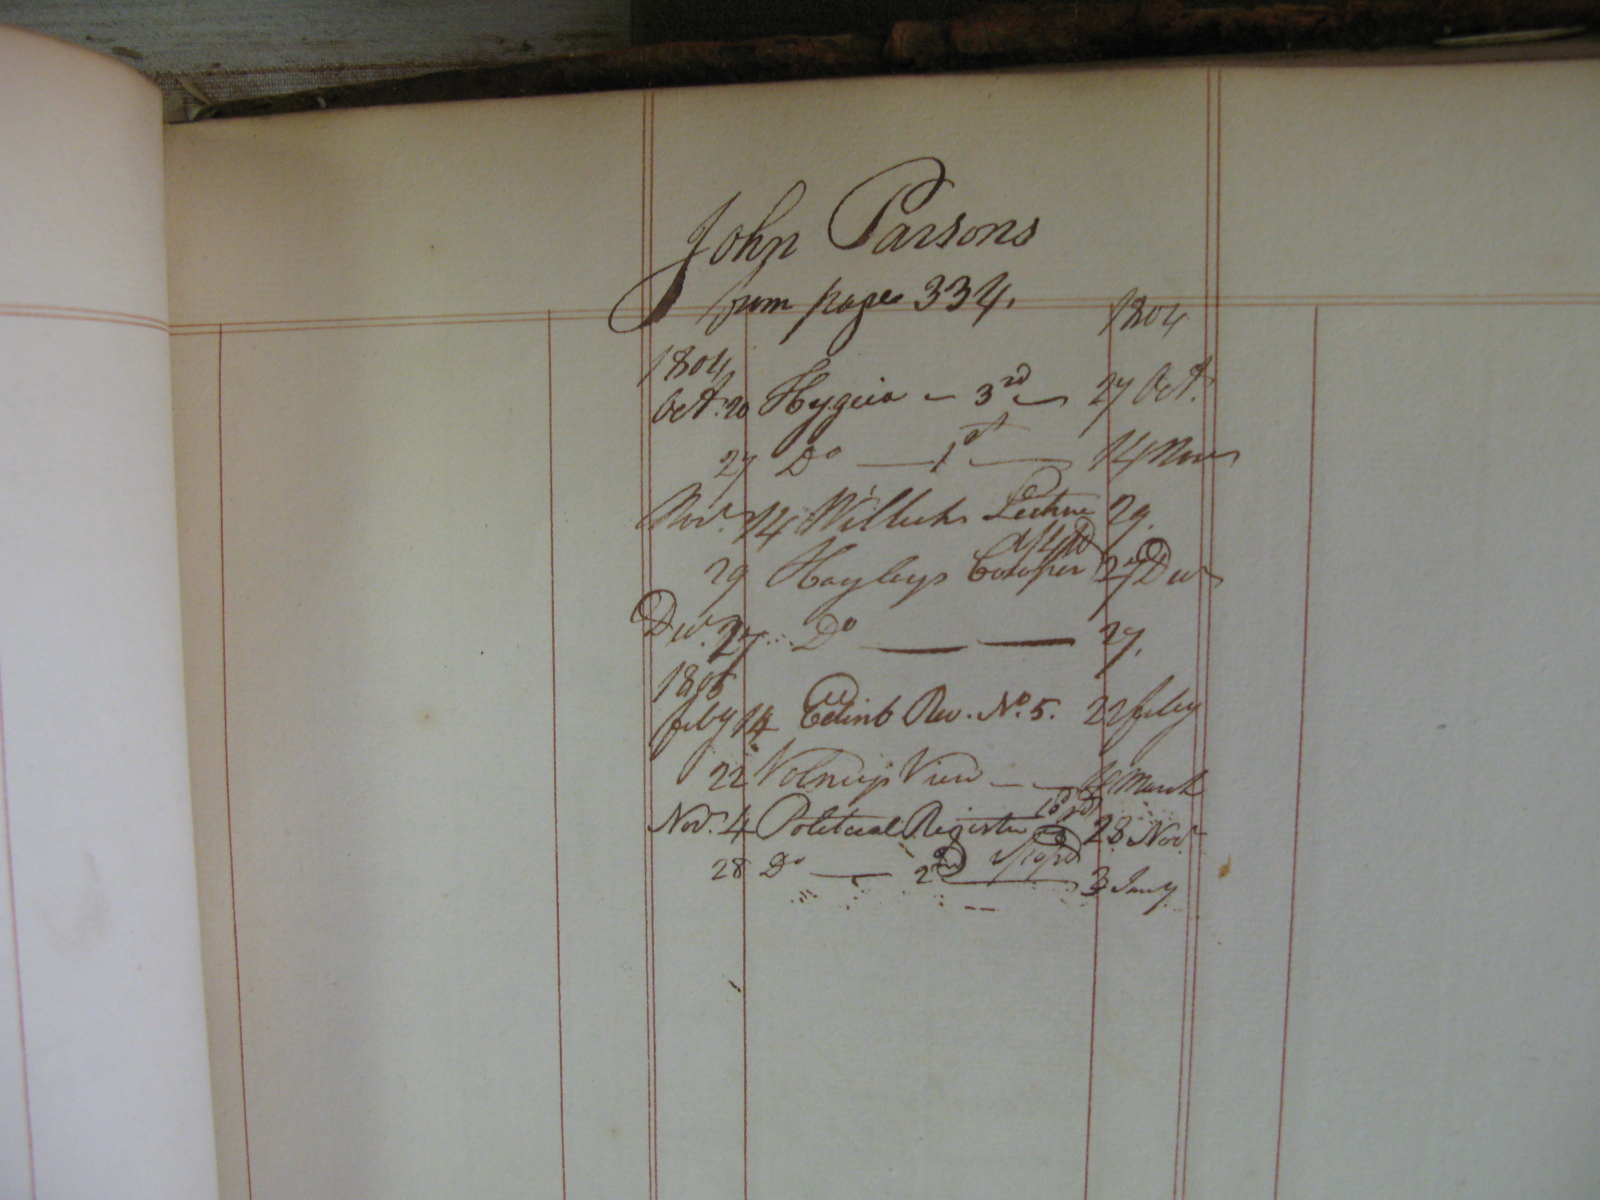 John Parsons
from page 334.
1804
1804
Oct. 20 Hygeia — 3rd — 27 Oct.
27 Do — 1st — 14 Nov
Nov. 14 Willichs Lecture 29.
29 Hayleys Cowper 27 Decr
Decr. 27 Do — — 29.
1805
feby 14 Edinb Rev. No. 5. 22 feby
22 Volney's View — — March
Nov. 4 Political Register 28 Nov
28 Do — 2nd — 3 Jany